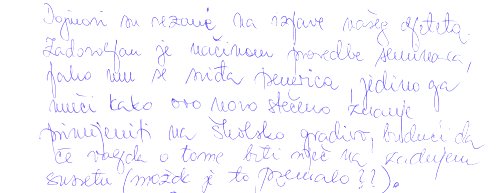 Dojmovi su vezani na izjave našeg djeteta.
Zadovoljan je načinom provedbe seminara,
jako mu se sviđa penerica, jedino ga
muči kako ovo novo stečeno znanje
primijeniti na školsko gradivo, budući da
će valjda o tome biti riječ na zadnjem
susretu (možda je to premalo?!).